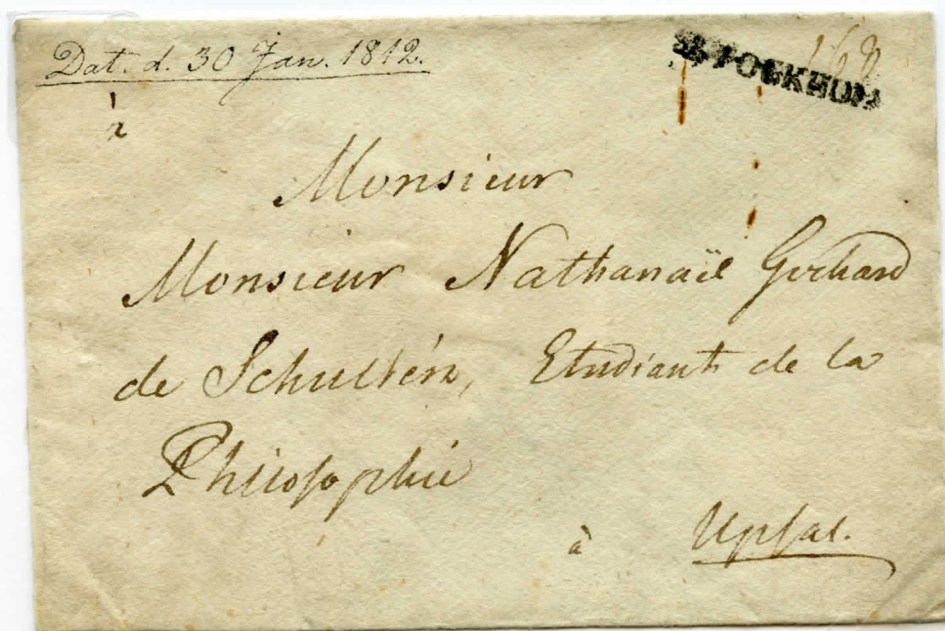 Dat. d. 30 Jan. 1812.
STOCKHOLM
Monsieur
Monsieur Nathanaël Gerhard
de Schultén, Etudiant de la
Philosophie
à Upsal.